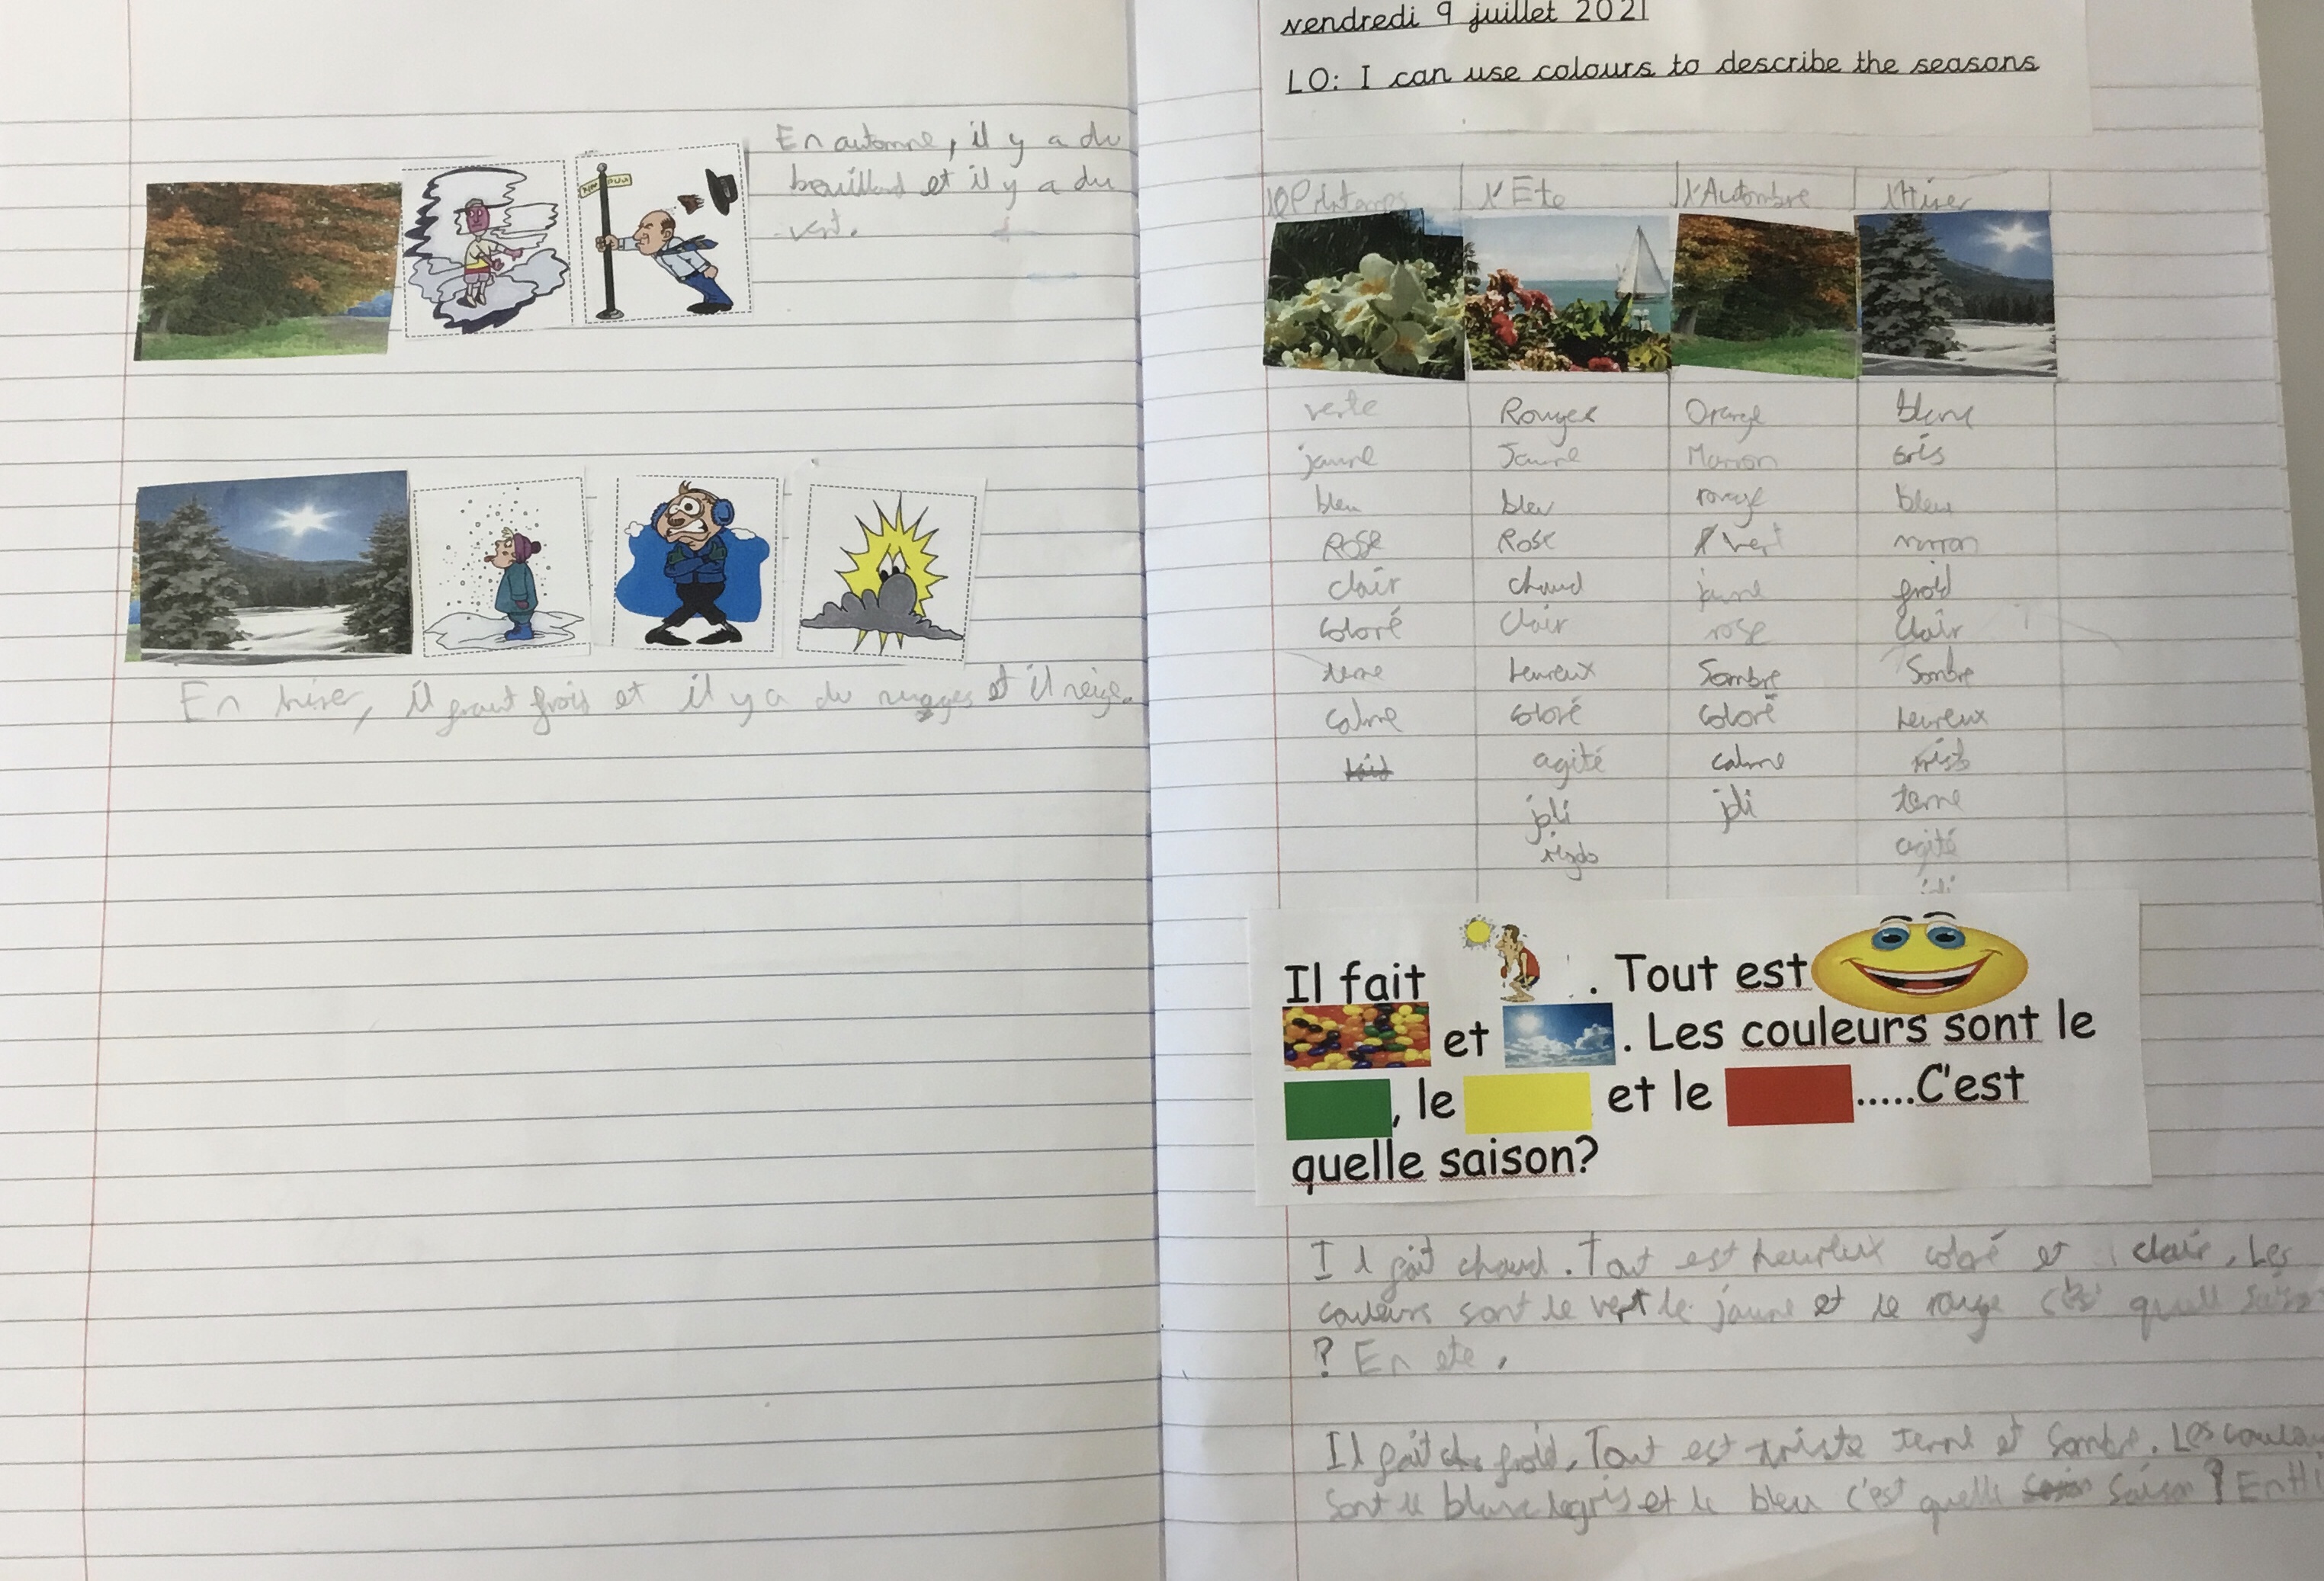 En automne, il y a du
brouillard et il y a du
vert.
En hiver, il faut frois et il y a du nuages et il neige.
vendredi 9 juillet 2021
LO: I can use colours to describe the seasons
l'Ete l'Autombre l'Hiver
verte Rouges Orange blanc
jaune Jaune Marron Gris
bleu bleu rouge bleu
Rose Rose vert marron
clair chaud jaune froid
coloré clair rose clair
terne heureux Sombre Sombre
calme coloré coloré heureux
agité calme
joli joli terne
agité
joli
Il fait . Tout est
et . Les couleurs sont le
, le et le .....C'est
quelle saison?
Il fait chaud. Tout est heureux coloré et clair. Les
couleurs sont le vert le jaune et le rouge quell
? En ete.
Il fait froid. Tout est triste terne et Sombre. Les
Sont le blanc le gris et le bleu c'est quelle saison? En